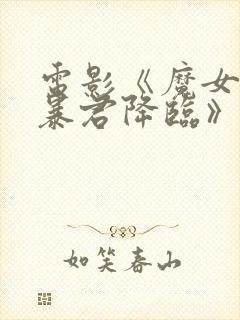 雷影《魔女
暴君降臨》
如笑春山